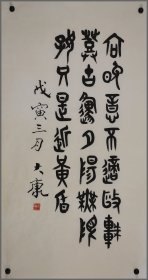 向晚意不適驅車
登古原夕陽無限
好只是近黃昏
戊寅三月大康